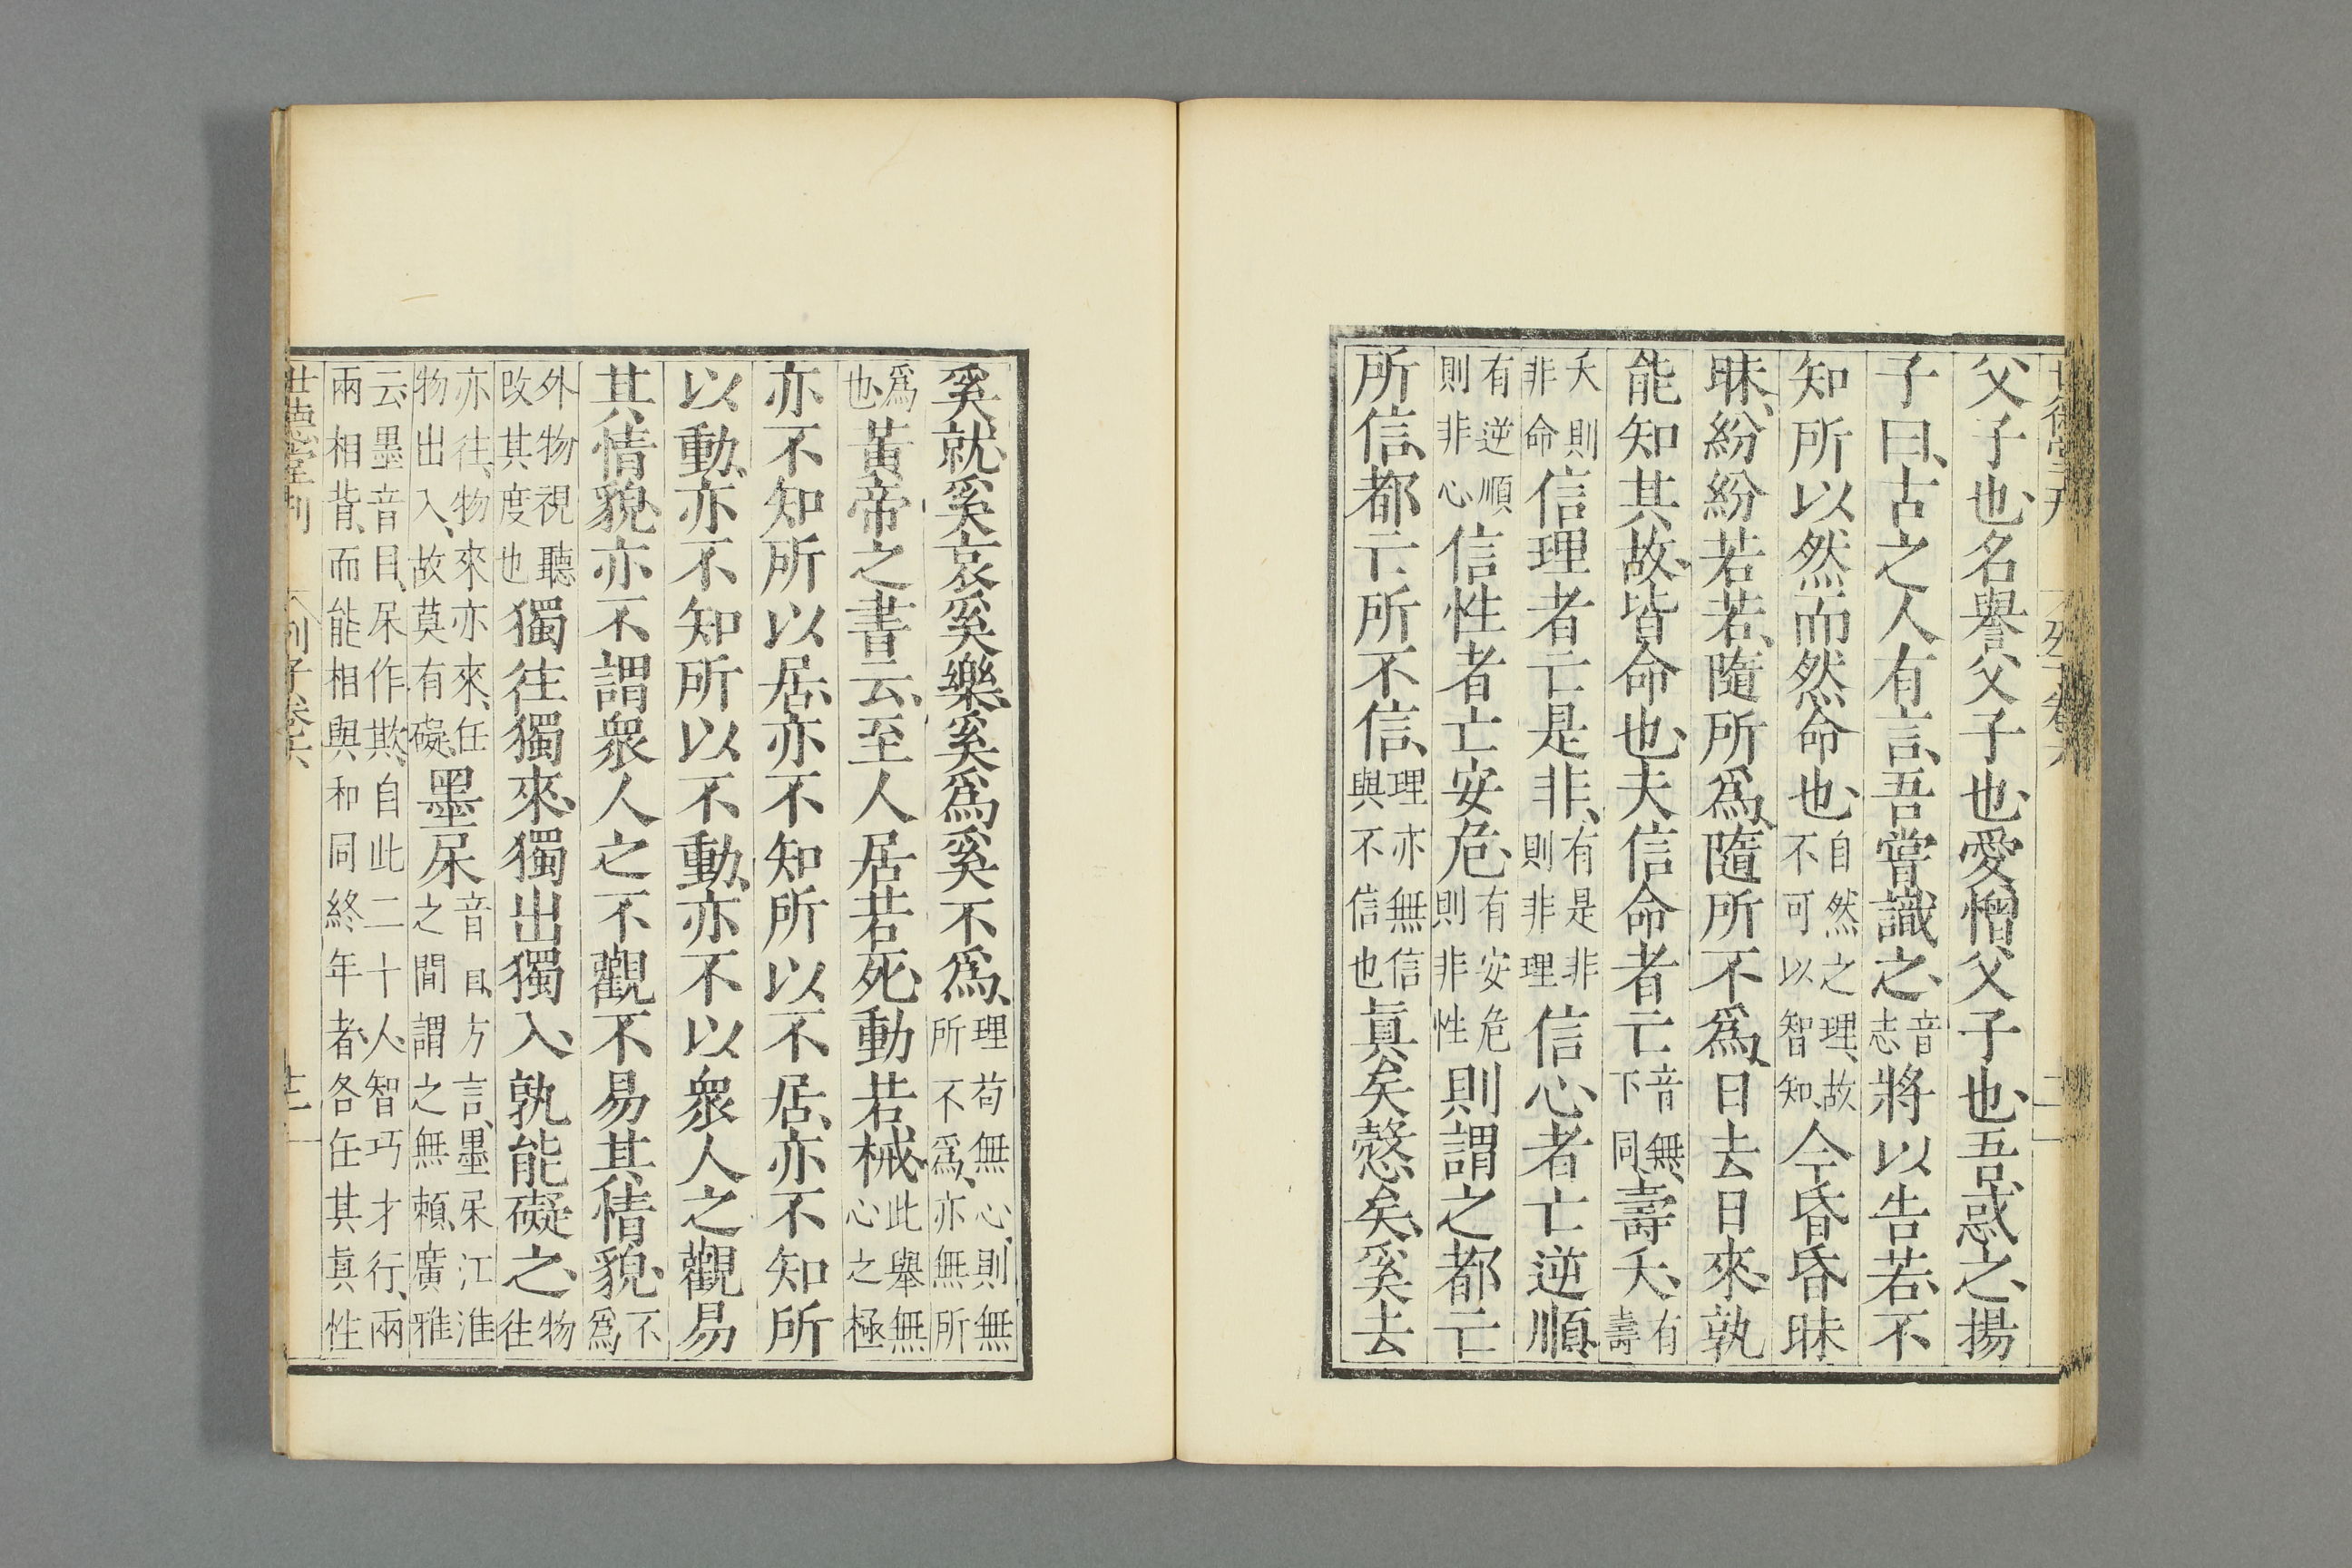 父子也、名譽父子也、愛憎父子也、吾惑之、揚
子曰、古之人有言、吾嘗識之、音志將以告若、不
知所以然而然、命也、自然之理、故不可以智知、今昏昏昧
昧、紛紛若若、隨所爲、隨所不爲、日去日來、孰
能知其故、皆命也、夫信命者亡音無、下同、壽夭、有壽
夭則非命信理者亡是非、有是非則非理信心者亡逆順、
有逆順則非心信性者亡安危、有安危則非性則謂之都亡
所信、都亡所不信、理亦無信與不信也眞矣愨矣、奚去
奚就、奚哀奚樂、奚爲奚不爲、理苟無心、則無所不爲、亦無所
爲也、黃帝之書云、至人居若死、動若械、此舉無心之極
亦不知所以居、亦不知所以不居、亦不知所
以動、亦不知所以不動、亦不以衆人之觀易
其情貌、亦不謂衆人之不觀不易其情貌、不爲
外物視聽改其度也獨往獨來、獨出獨入、孰能礙之、物往
亦往、物來亦來、任物出入、故莫有礙、墨杘音目、方言、墨杘江淮之間謂之無賴、廣雅
云、墨音目、杘作欺、自此二十人、智巧才行、兩兩相背、而能相與和同終年者、各任其眞性
世德堂刊 列子卷六